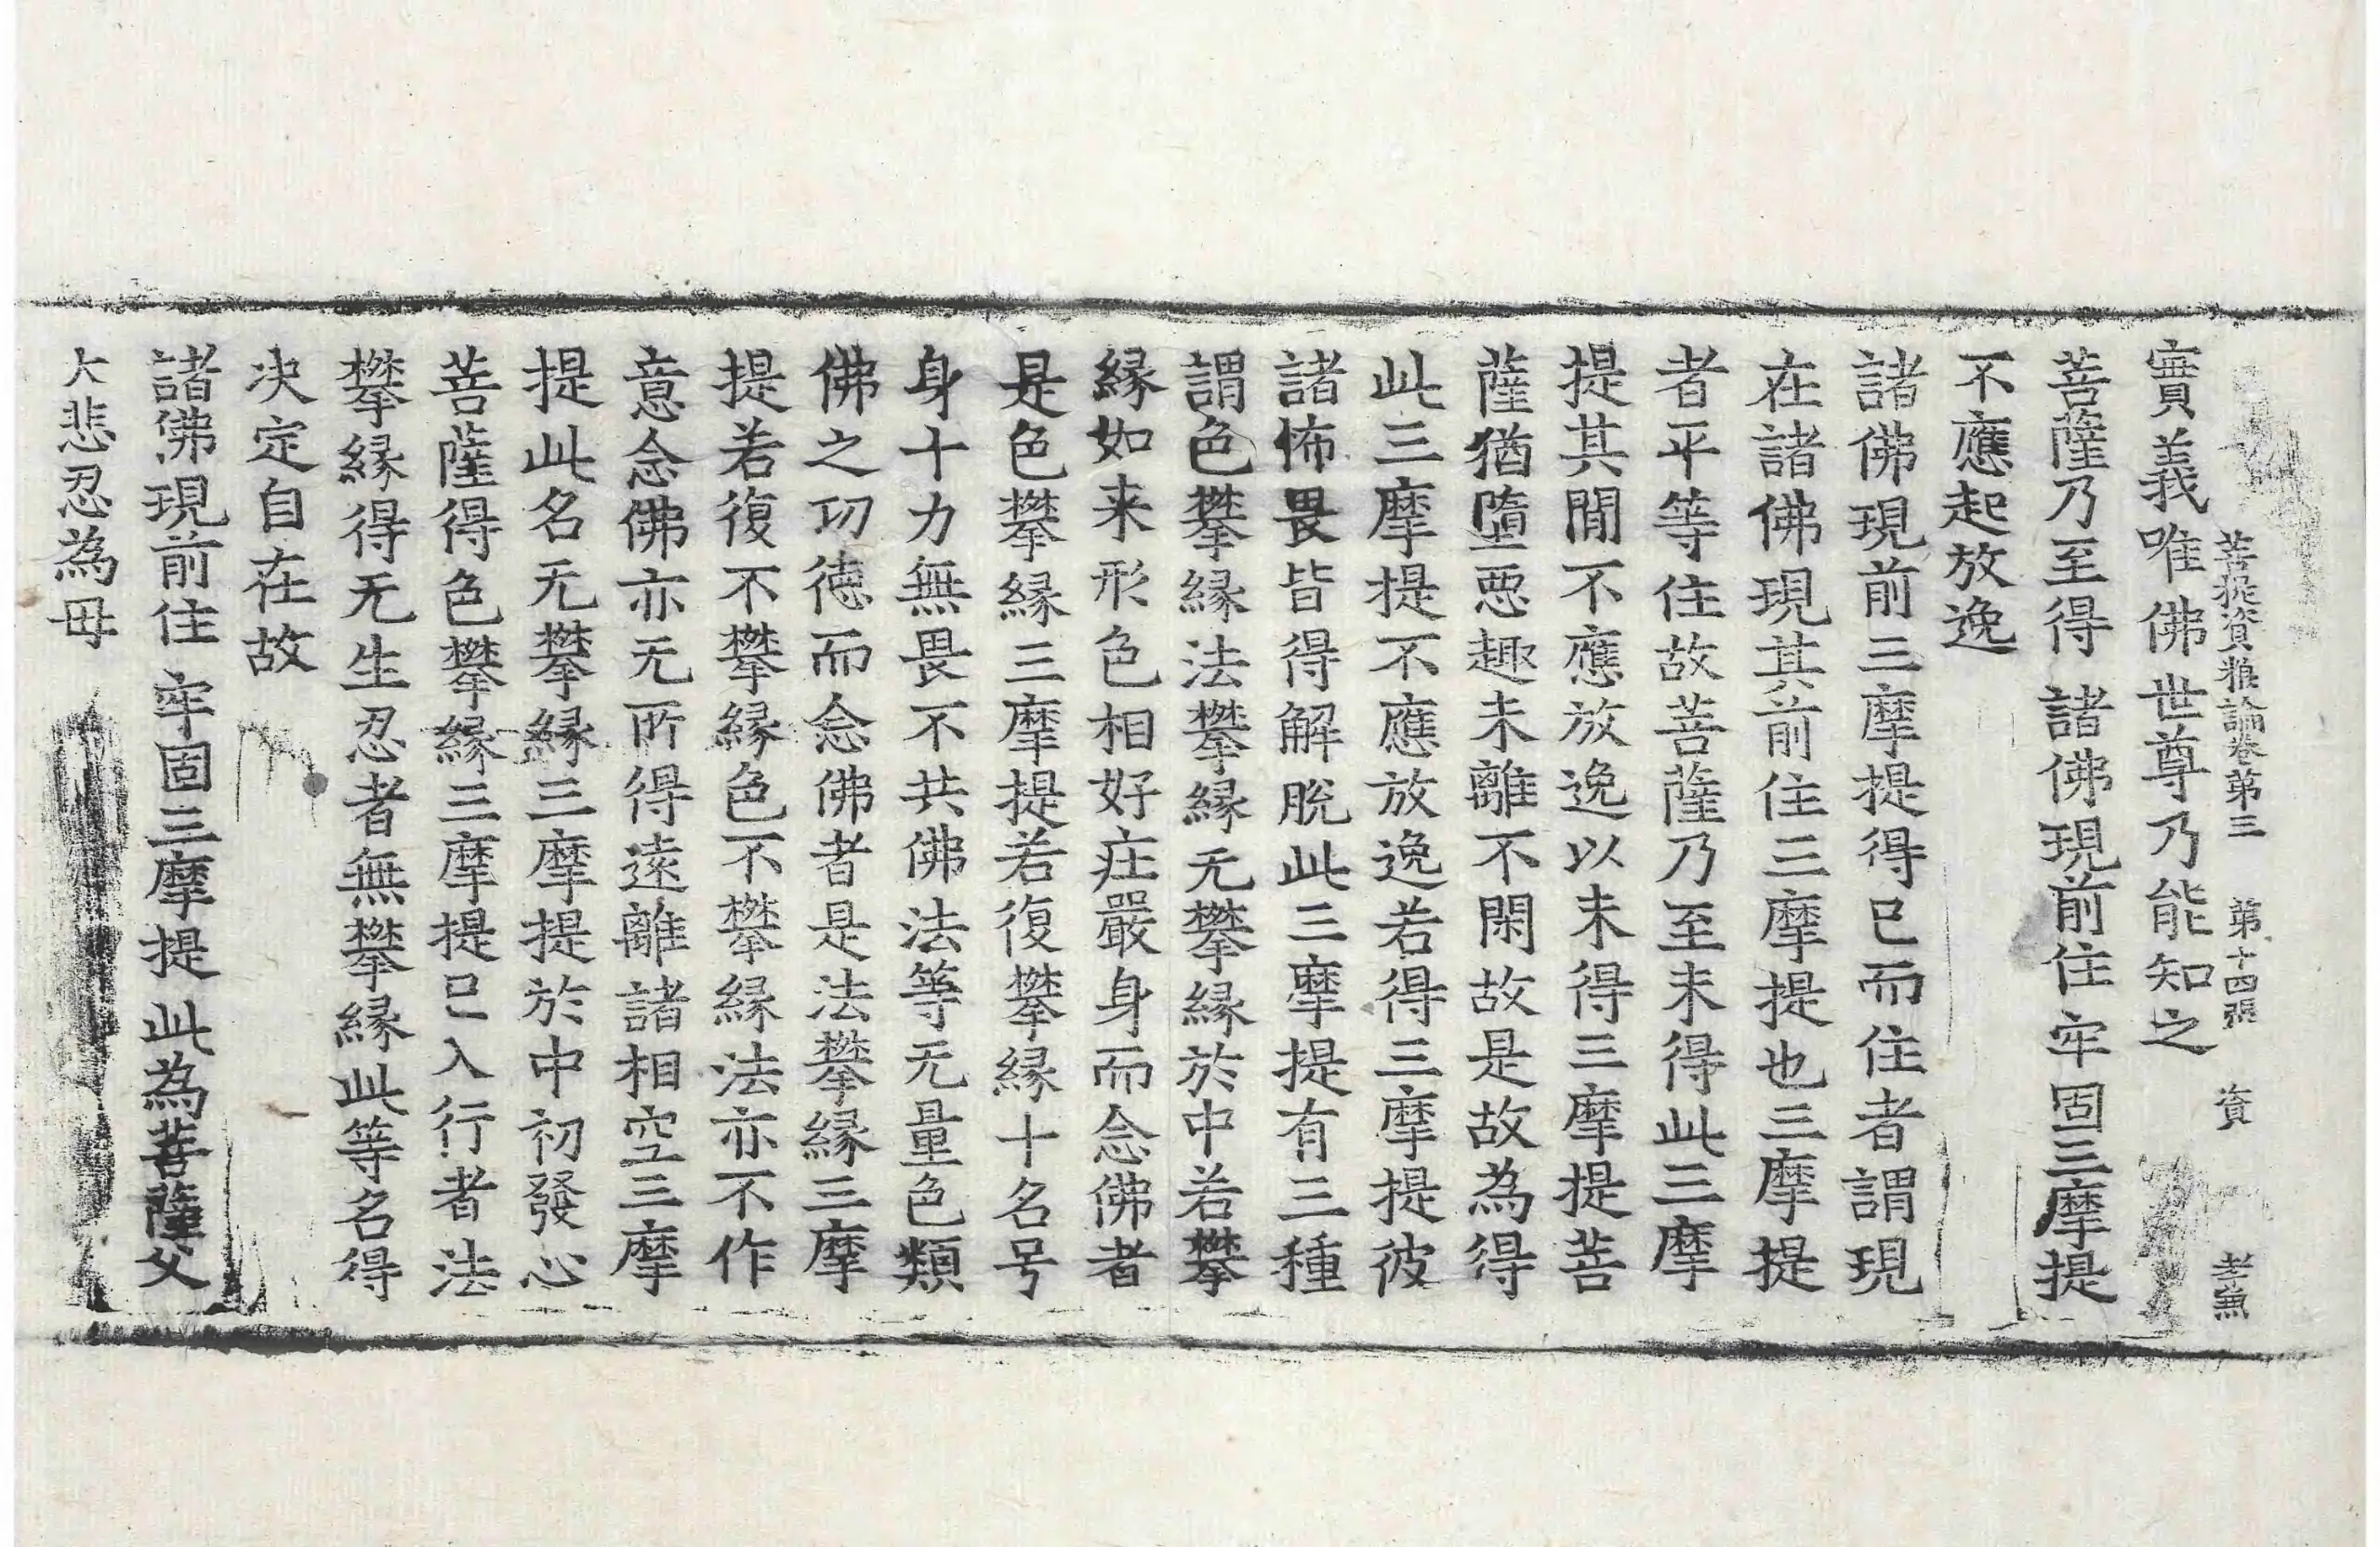 菩提資粮論卷第三 第十四張 資 孝兼
實義唯佛世尊乃能知之
菩薩乃至得 諸佛現前住 牢固三摩提
不應起放逸
諸佛現前三摩提得已而住者謂現
在諸佛現其前住三摩提也三摩提
者平等住故菩薩乃至未得此三摩
提其間不應放逸以未得三摩提菩
薩猶墮惡趣未離不閑故是故為得
此三摩提不應放逸若得三摩提彼
諸怖畏皆得解脫此三摩提有三種
謂色攀縁法攀縁无攀縁於中若攀
縁如来形色相好庄嚴身而念佛者
是色攀縁三摩提若復攀縁十名号
身十力無畏不共佛法等无量色類
佛之功德而念佛者是法攀縁三摩
提若復不攀縁色不攀縁法亦不作
意念佛亦无所得遠離諸相空三摩
提此名无攀縁三摩提於中初發心
菩薩得色攀縁三摩提已入行者法
攀縁得无生忍者無攀縁此等名得
决定自在故
諸佛現前住 牢固三摩提 此為菩薩父
大悲忍為母